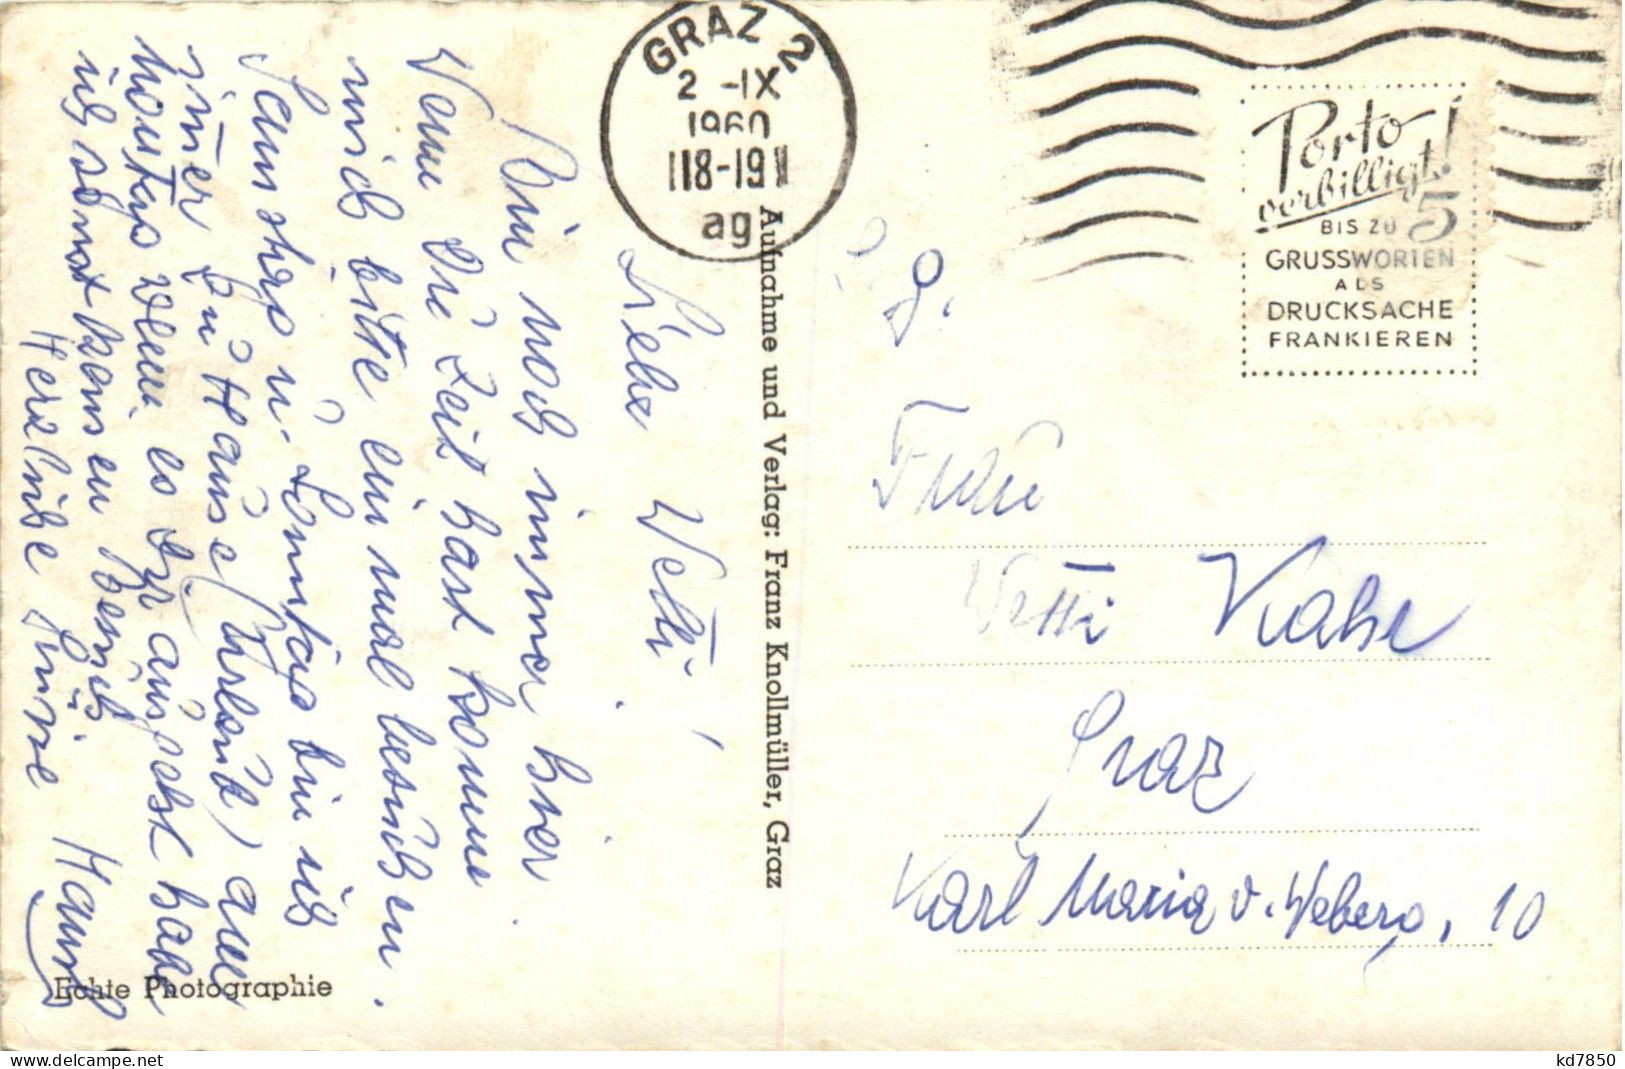 GRAZ 2
2 -IX
1960
18-19
ag
Porto
verbilligt!
BIS ZU 5
GRUSSWORTEN
ALS
DRUCKSACHE
FRANKIEREN
Liebe Vetti!
Bin noch immer hier.
Wenn Du Zeit hast komme
mich bitte einmal besuchen.
Samstag u. Sonntag bin ich
immer zu Hause (Urlaub) am
Montag wenn es Dir
ich sonst
Herzliche Grüsse
Echte Photographie
Aufnahme und Verlag: Franz Knollmüller, Graz
Frau
Vetti
Graz
Karl Maria v. Weberg, 10
kd7850